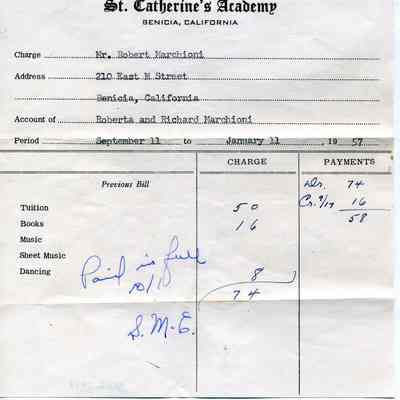 St. Catherine's Academy
BENICIA, CALIFORNIA
Charge Mr. Robert Marchioni
Address 210 East M Street
Benicia, California
Account of Roberta and Richard Marchioni
Period September 11 to January 11, 1957
CHARGE PAYMENTS
Previous Bill Dr. 74
Tuition 50 Cr. 9/17 16
Books 16 58
Music
Sheet Music
Dancing 8
Paid in full 74
10/1
S.M.E.